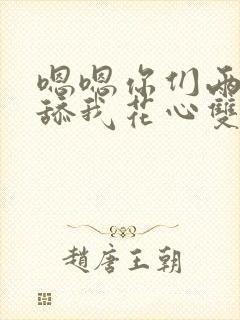 嗯嗯你们两
舔我花心雙
趙唐王朝